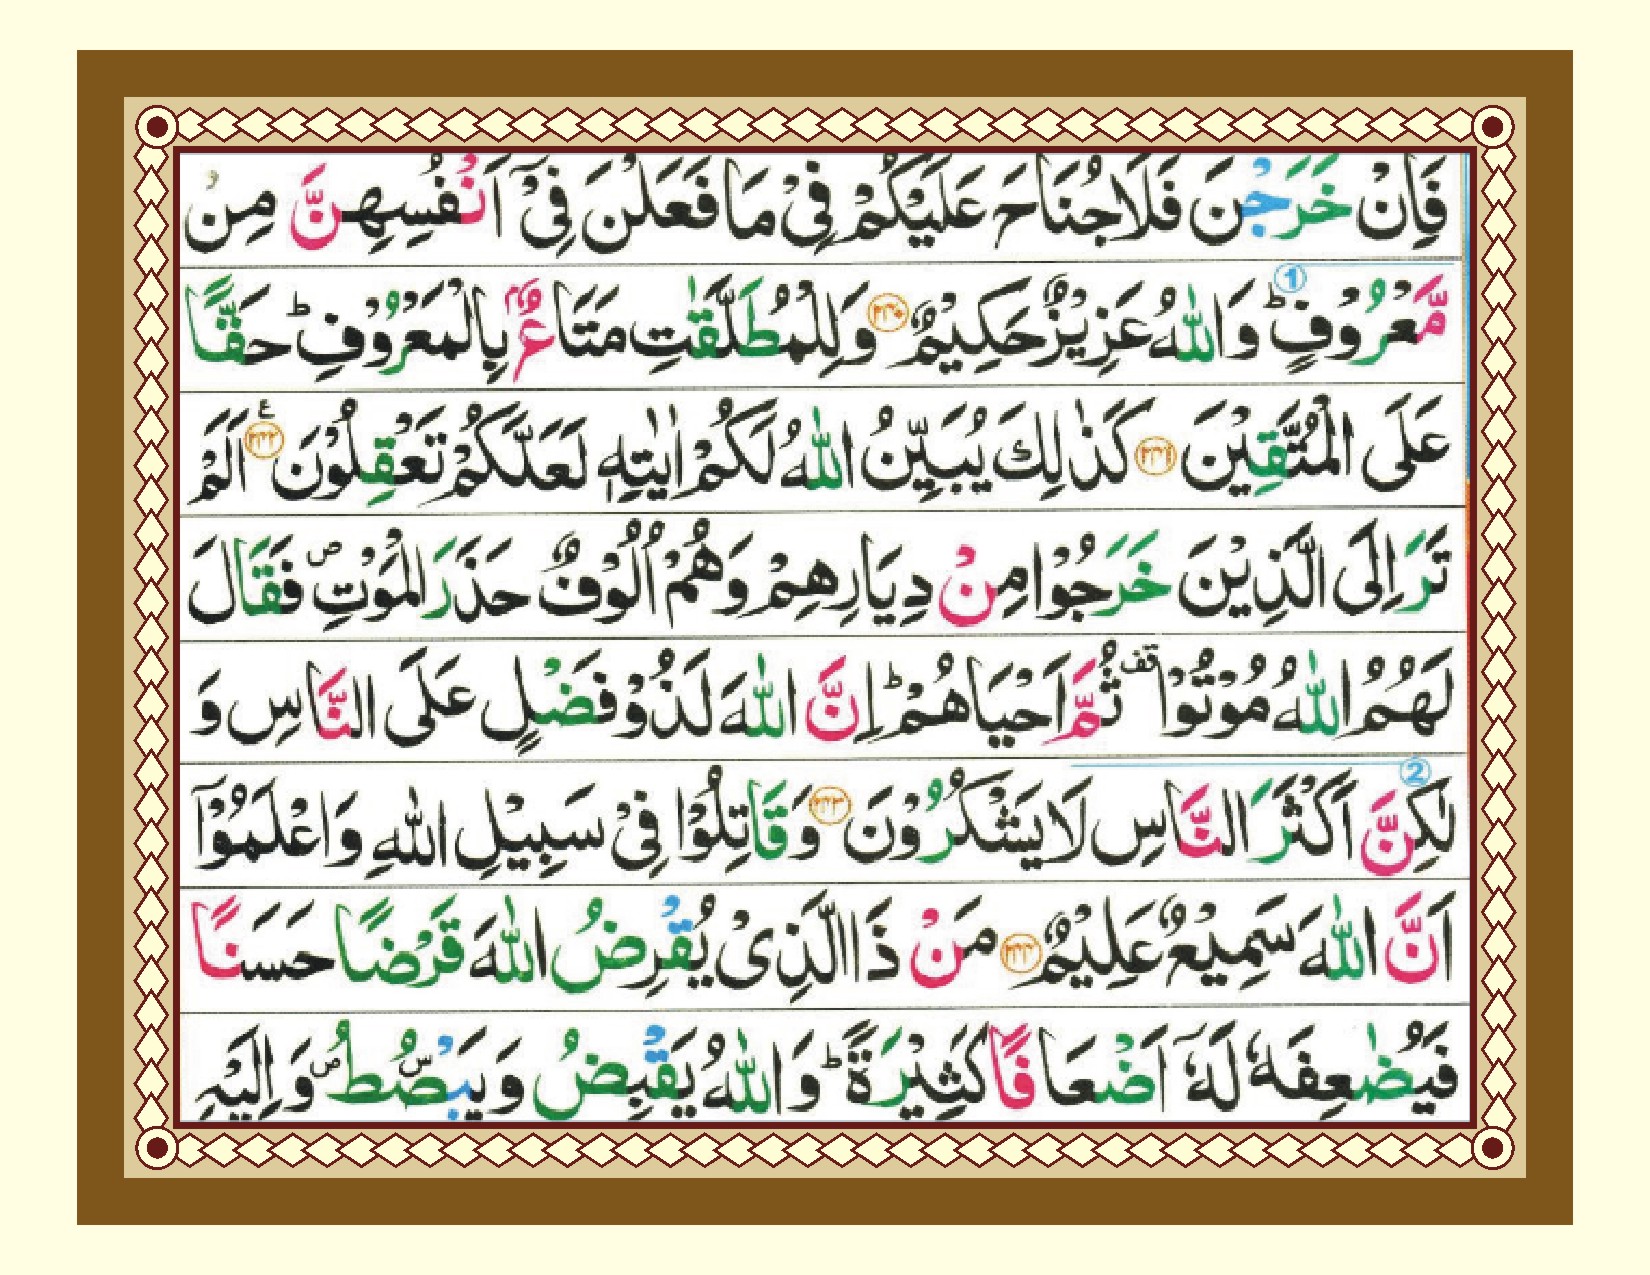 فَاِنْ خَرَجْنَ فَلَا جُنَاحَ عَلَيْكُمْ فِيْ مَا فَعَلْنَ فِيْۤ اَنْفُسِهِنَّ مِنْ
مَّعْرُوْفٍ ؕ وَاللّٰهُ عَزِيْزٌ حَكِيْمٌ ﴿۲۴۰﴾ وَلِلْمُطَلَّقٰتِ مَتَاعٌۢ بِالْمَعْرُوْفِ ؕ حَقًّا
عَلَى الْمُتَّقِيْنَ ﴿۲۴۱﴾ كَذٰلِكَ يُبَيِّنُ اللّٰهُ لَكُمْ اٰيٰتِهٖ لَعَلَّكُمْ تَعْقِلُوْنَ ﴿۲۴۲﴾ ع اَلَمْ
تَرَ اِلَى الَّذِيْنَ خَرَجُوْا مِنْ دِيَارِهِمْ وَهُمْ اُلُوْفٌ حَذَرَ الْمَوْتِ ص فَقَالَ
لَهُمُ اللّٰهُ مُوْتُوْا قف ثُمَّ اَحْيَاهُمْ ؕ اِنَّ اللّٰهَ لَذُوْ فَضْلٍ عَلَى النَّاسِ وَ
لٰكِنَّ اَكْثَرَ النَّاسِ لَا يَشْكُرُوْنَ ﴿۲۴۳﴾ وَقَاتِلُوْا فِيْ سَبِيْلِ اللّٰهِ وَاعْلَمُوْۤا
اَنَّ اللّٰهَ سَمِيْعٌ عَلِيْمٌ ﴿۲۴۴﴾ مَنْ ذَا الَّذِيْ يُقْرِضُ اللّٰهَ قَرْضًا حَسَنًا
فَيُضٰعِفَهٗ لَهٗۤ اَضْعَافًا كَثِيْرَةً ؕ وَاللّٰهُ يَقْبِضُ وَيَبْصُۜطُ ص وَاِلَيْهِ